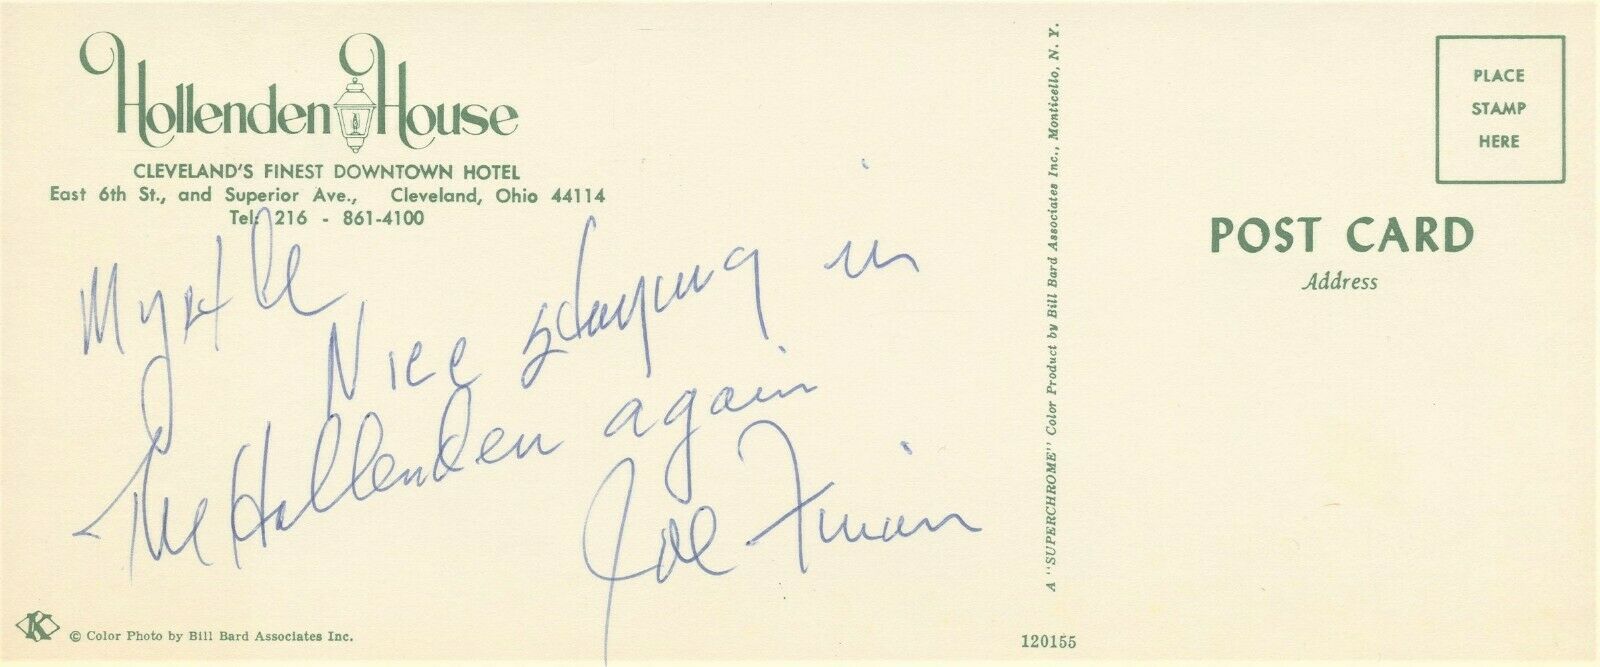 Hollenden House
CLEVELAND'S FINEST DOWNTOWN HOTEL
East 6th St., and Superior Ave., Cleveland, Ohio 44114
Tel: 216 - 861-4100
Myrtle,
Nice staying in
The Hollenden again
Joe
© Color Photo by Bill Bard Associates Inc.
K
A "SUPERCHROME" Color Product by Bill Bard Associates Inc., Monticello, N. Y.
120155
PLACE
STAMP
HERE
POST CARD
Address